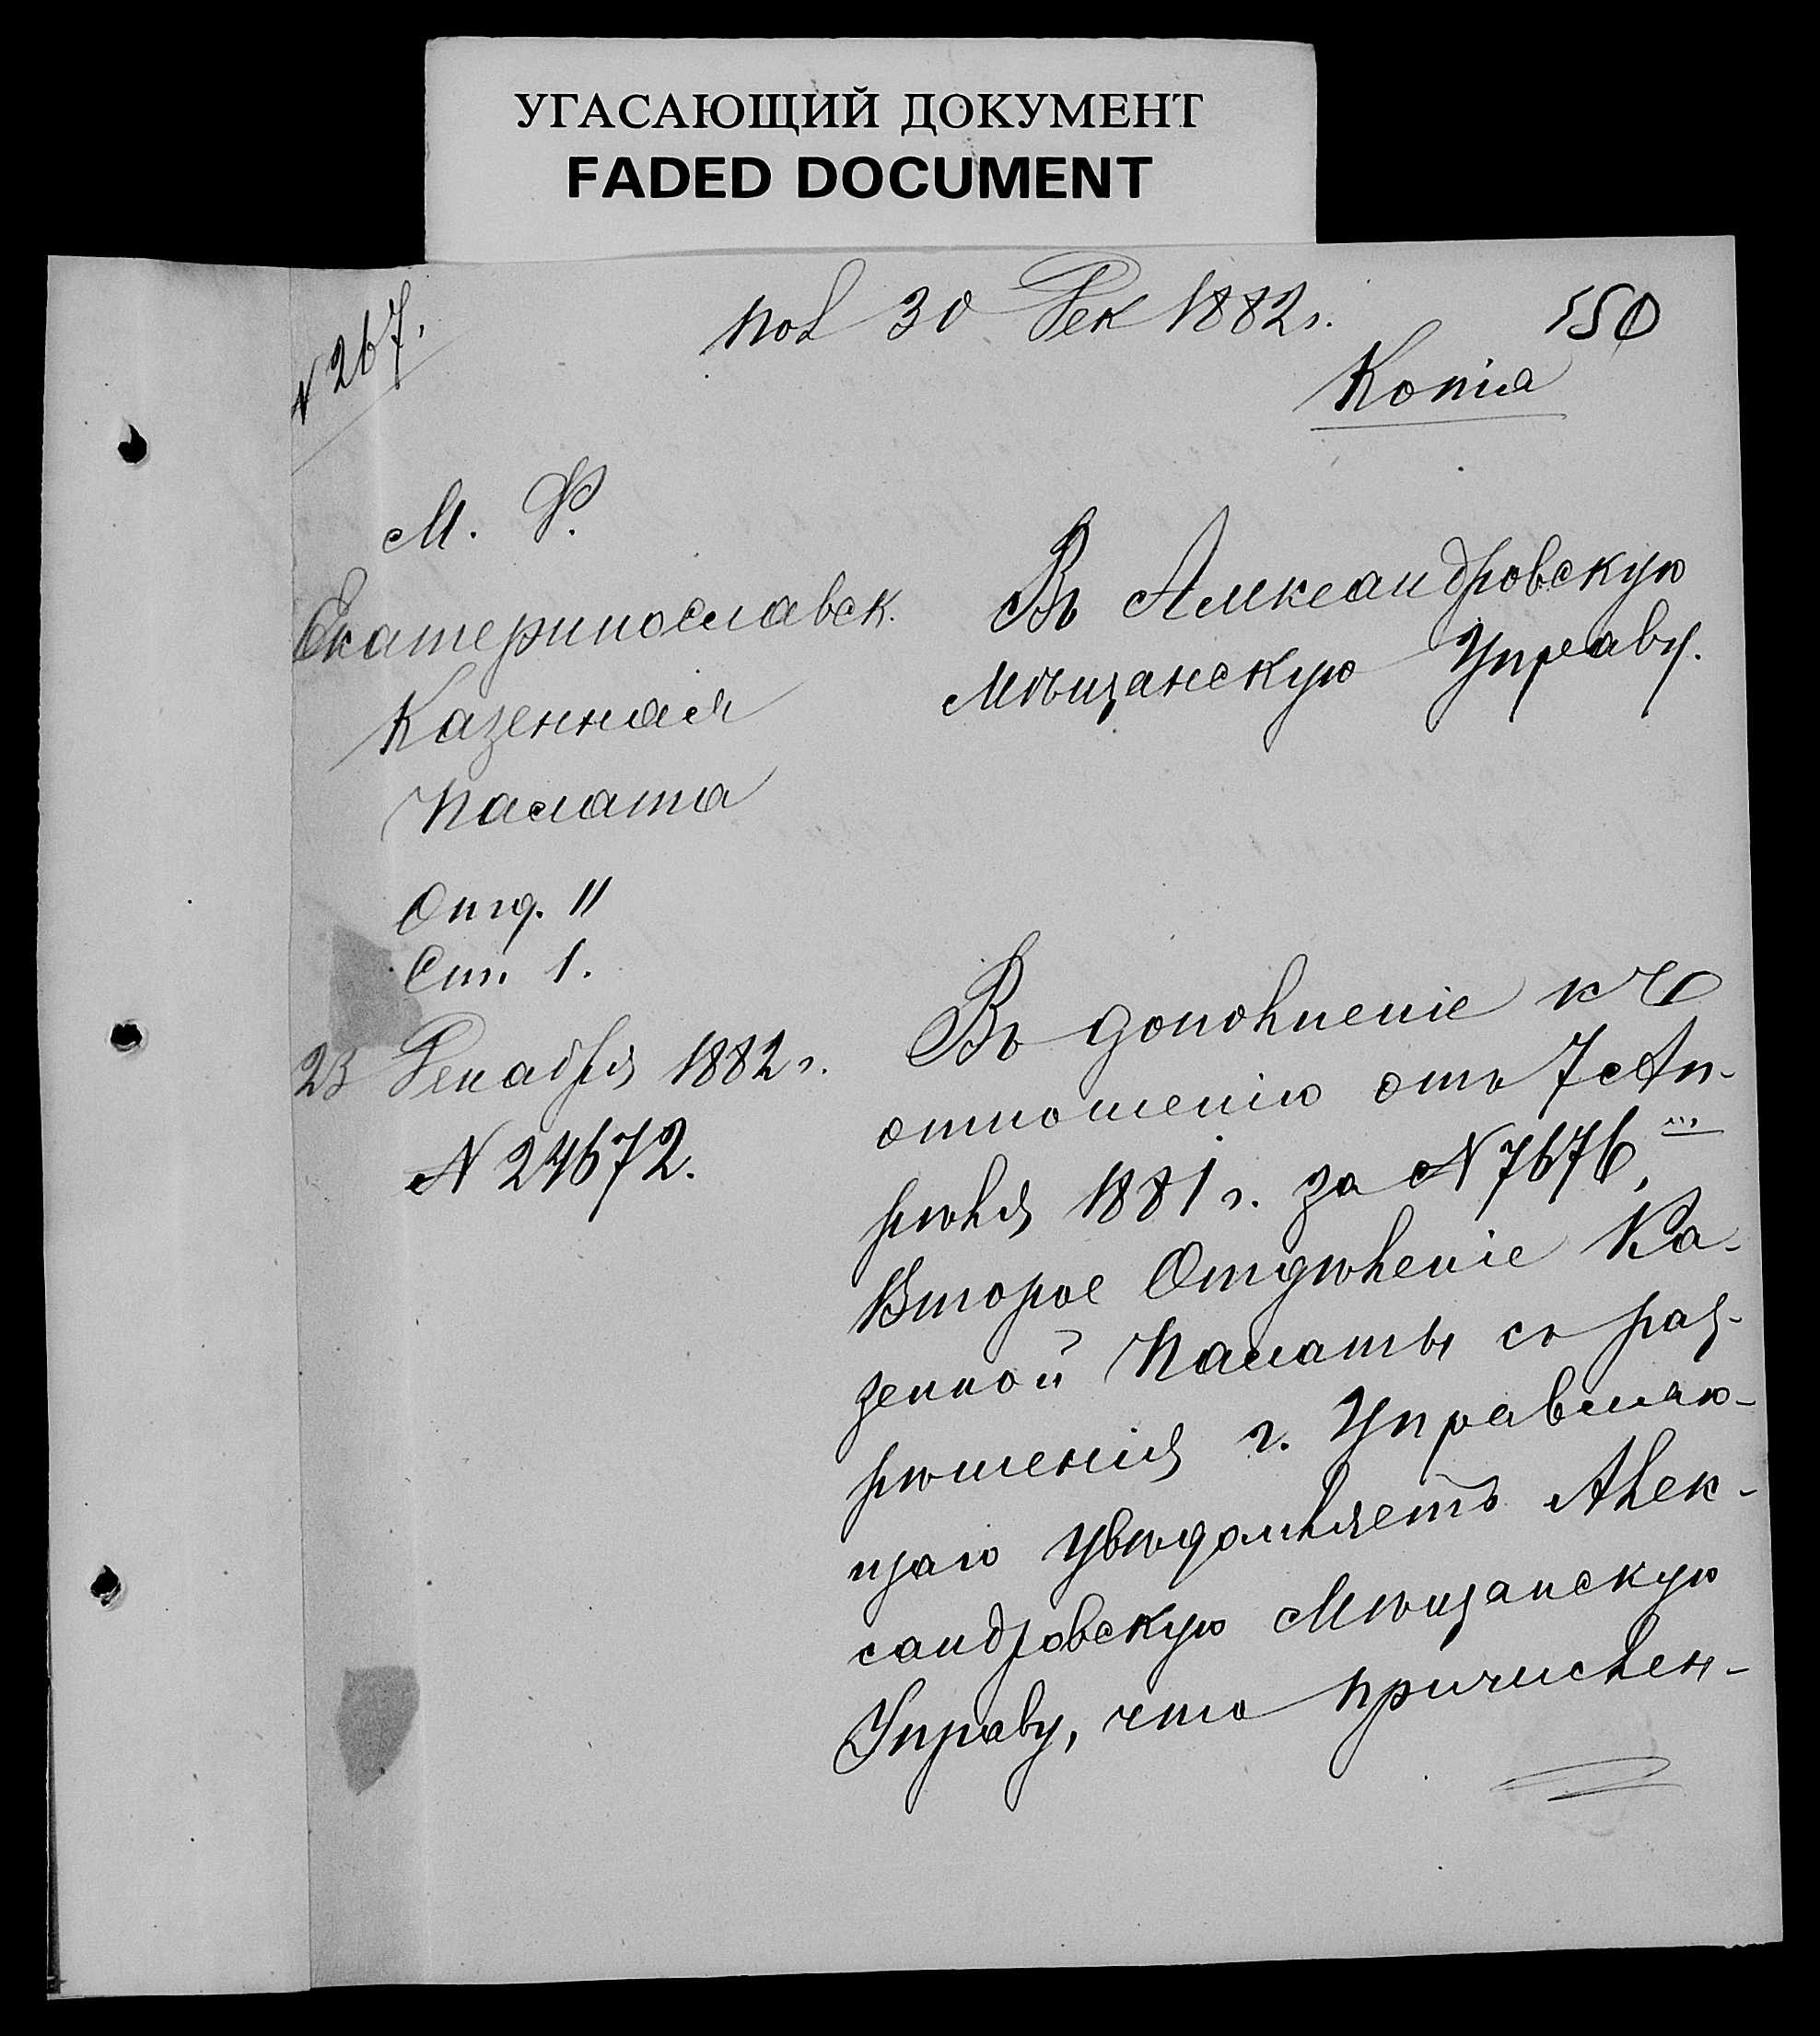 УГАСАЮЩИЙ ДОКУМЕНТ
FADED DOCUMENT
N 267.
пол 30 Дек 1882 г.
150
Копiя
М. Ф.
Екатеринославск.
Казенная
Палата
Отд. II
Ст. 1.
23 Декабря 1882 г.
N 24672.
Въ Александровскую
Мѣщанскую Управу.
Въ дополненiе къ
отношенiю отъ 7 Ап-
рѣля 1881 г. за N 7676,
Второе Отдѣленiе Ка-
зенной Палаты съ раз-
рѣшенiя г. Управляю-
щаго увѣдомляетъ Алек-
сандровскую Мѣщанскую
Управу, что причислен-